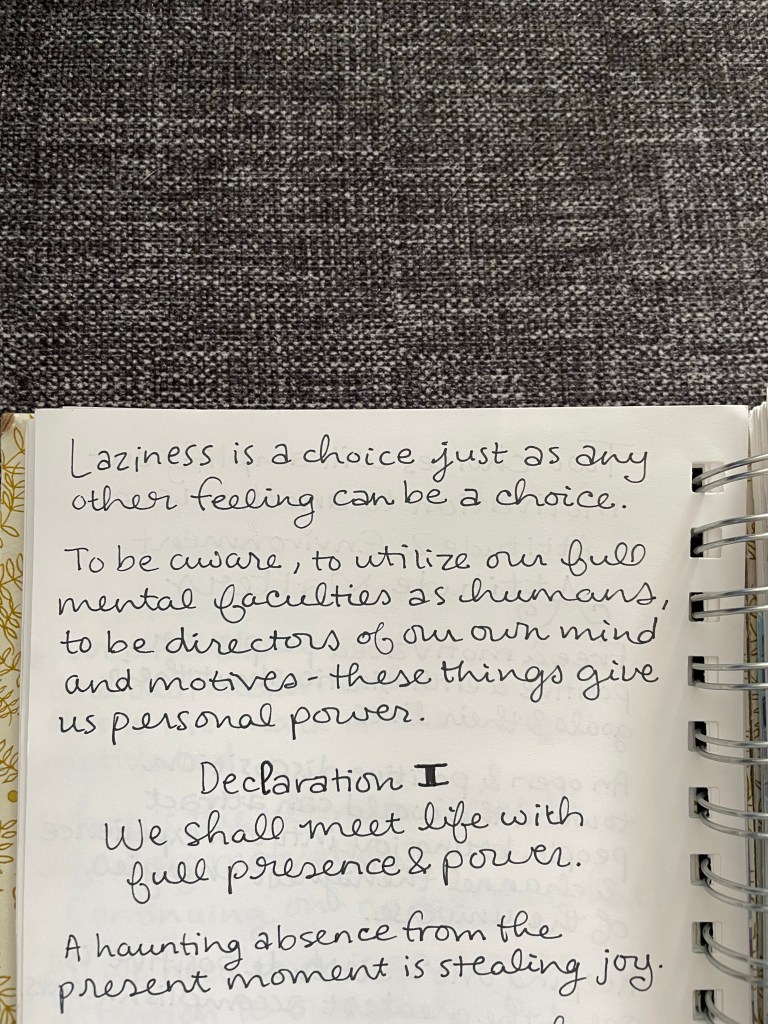 Laziness is a choice just as any
other feeling can be a choice.
To be aware, to utilize our full
mental faculties as humans,
to be directors of our own mind
and motives - these things give
us personal power.
Declaration I
We shall meet life with
full presence & power.
A haunting absence from the
present moment is stealing joy.